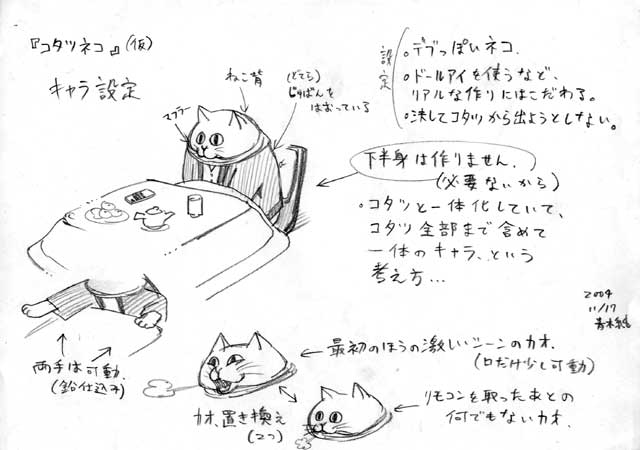 『コタツネコ』(仮)
キャラ設定
ねこ背
(どてら)
じゅばんを
はおっている
マフラー
設定
。デブっぽいネコ.
。ドールアイを使うなど、
リアルな作りにはこだわる。
。決してコタツから出ようとしない。
下半身は作りません.
(必要ないから)
。コタツと一体化していて、
コタツ全部まで含めて
一体のキャラ、という
考え方...
2004
11/17
青木
両手は可動.
(鉛仕込み)
最初のほうの激しいシーンのカオ.
(口だけ少し可動)
カオ、置き換え
(2つ)
リモコンを取ったあとの
何でもないカオ.